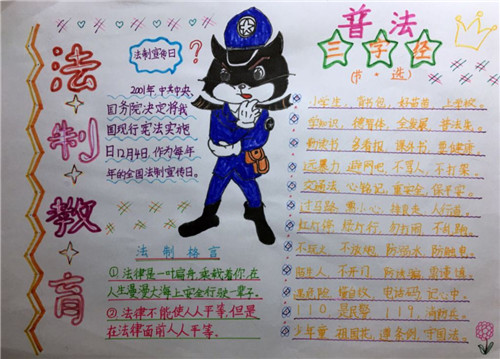 法制教育
法制宣传日
?
2001年中共中央、
国务院决定将我
国现行宪法实施
日12月4日,作为每年
年的全国法制宣传日。
法制格言
①法律是一叶扁舟,承载着你,在
人生漫漫大海上安全行驶一辈子。
②法律不能使人人平等,但是
在法律面前人人平等。
普法
三字经
(节·选)
小学生,背书包,好苗苗,上学校。
学知识,德智体,全发展,
勤读书,多看报,课外书,要健康。
远暴力,不骂人,不打架。
交通法,心铭记,重安全,保平安。
过马路,需小心,人行道。
红灯停,绿灯行,勿打闹,不乱跑。
不玩火,不放炮,防溺水,防触电。
陌生人,不开门,防诱骗,需谨慎。
遇危险,懂自救,电话码,记心中。
110,是民警,119,消防兵。
少年童,祖国花,遵条例,守国法。